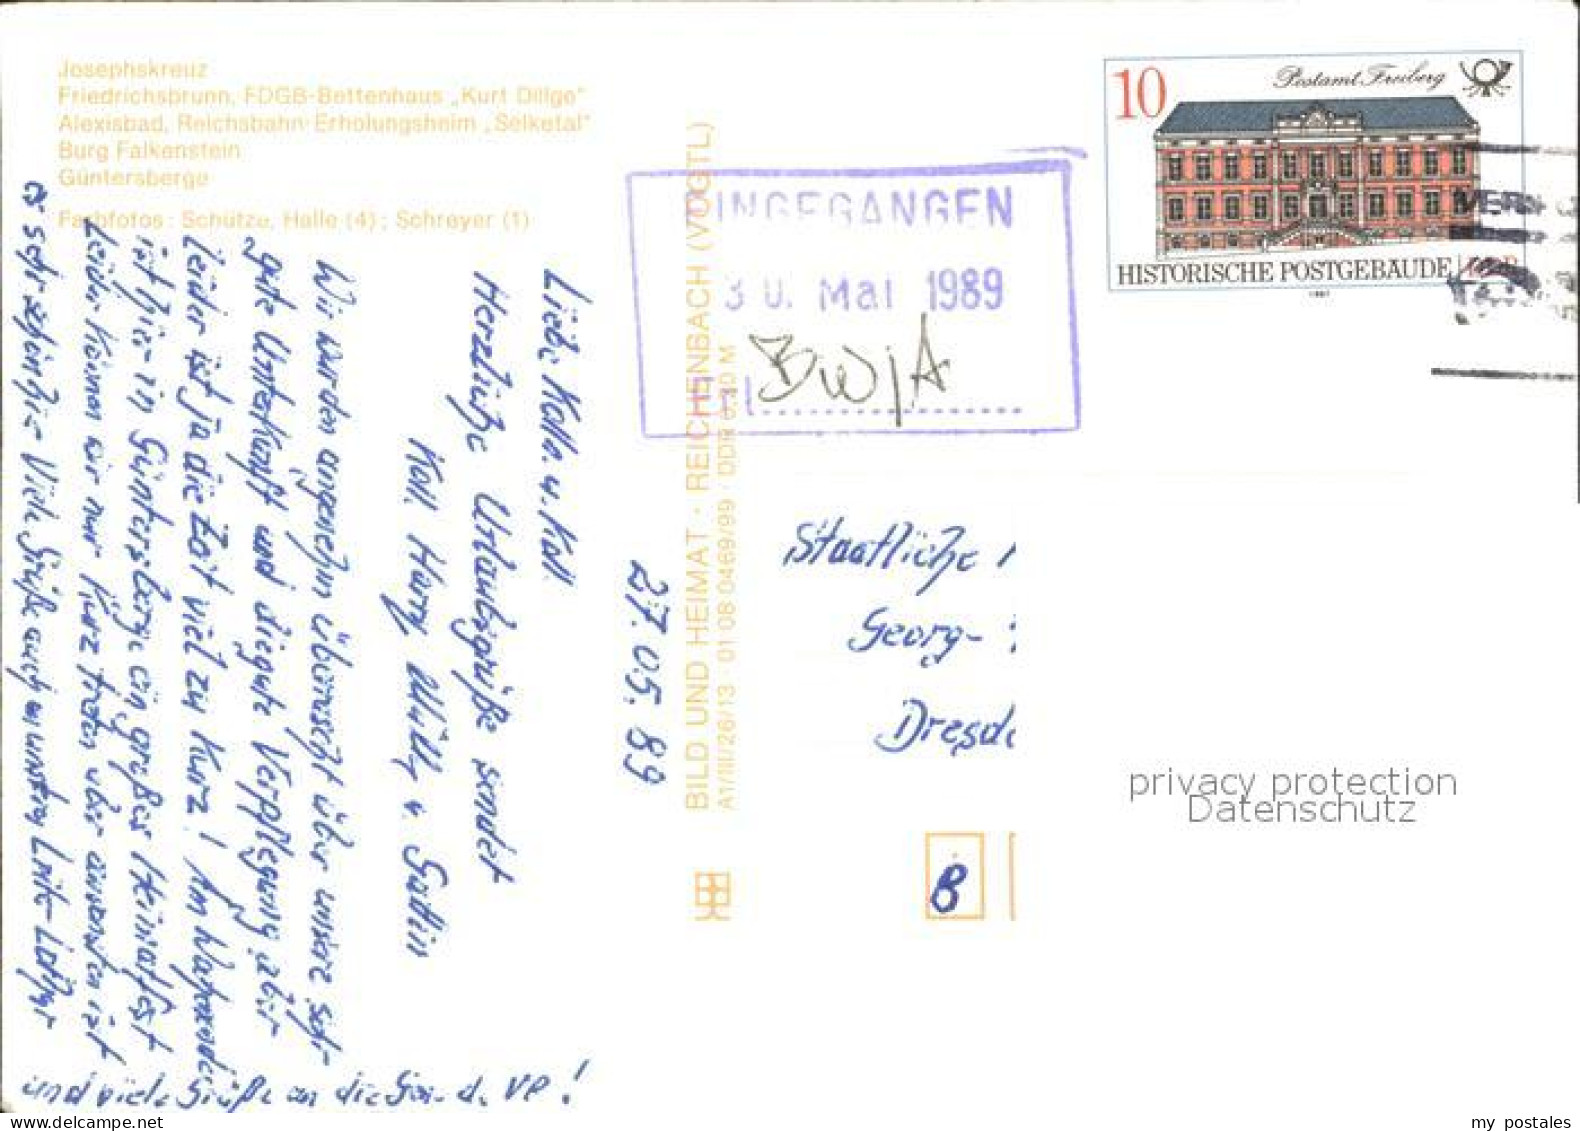 Josephskreuz
Friedrichsbrunn, FDGB-Bettenhaus „Kurt Dillge"
Alexisbad, Reichsbahn-Erholungsheim „Selketal"
Burg Falkenstein
Güntersberge
Farbfotos: Schütze, Halle (4); Schreyer (1)
Liebe Kolln. u. Koll.
Herzliche Urlaubsgrüße sendet
Koll. Harry u. Gattin
Wir wurden angenehm überrascht über unsere sehr
gute Unterkunft und die gute Verpflegung aber
leider ist ja die Zeit viel zu kurz! Am Wochenende
ist hier in Güntersberge ein großes Heimatfest
Leider können wir nur kurz treten aber ansonsten ist
es sehr schön hier Viele Grüße auch an unseren
und viele Grüße an die d. VP!
27.05.89
BILD UND HEIMAT · REICHENBACH (VOGTL)
A1/III/26/13 · 01 08 0469/99 · DDR 0,20 M
INGEGANGEN
30. Mai 1989
BWJA
10
Postamt Freiberg
HISTORISCHE POSTGEBÄUDE DDR
1987
Staatliche
Georg-
Dresd
8
privacy protection
Datenschutz
my postales